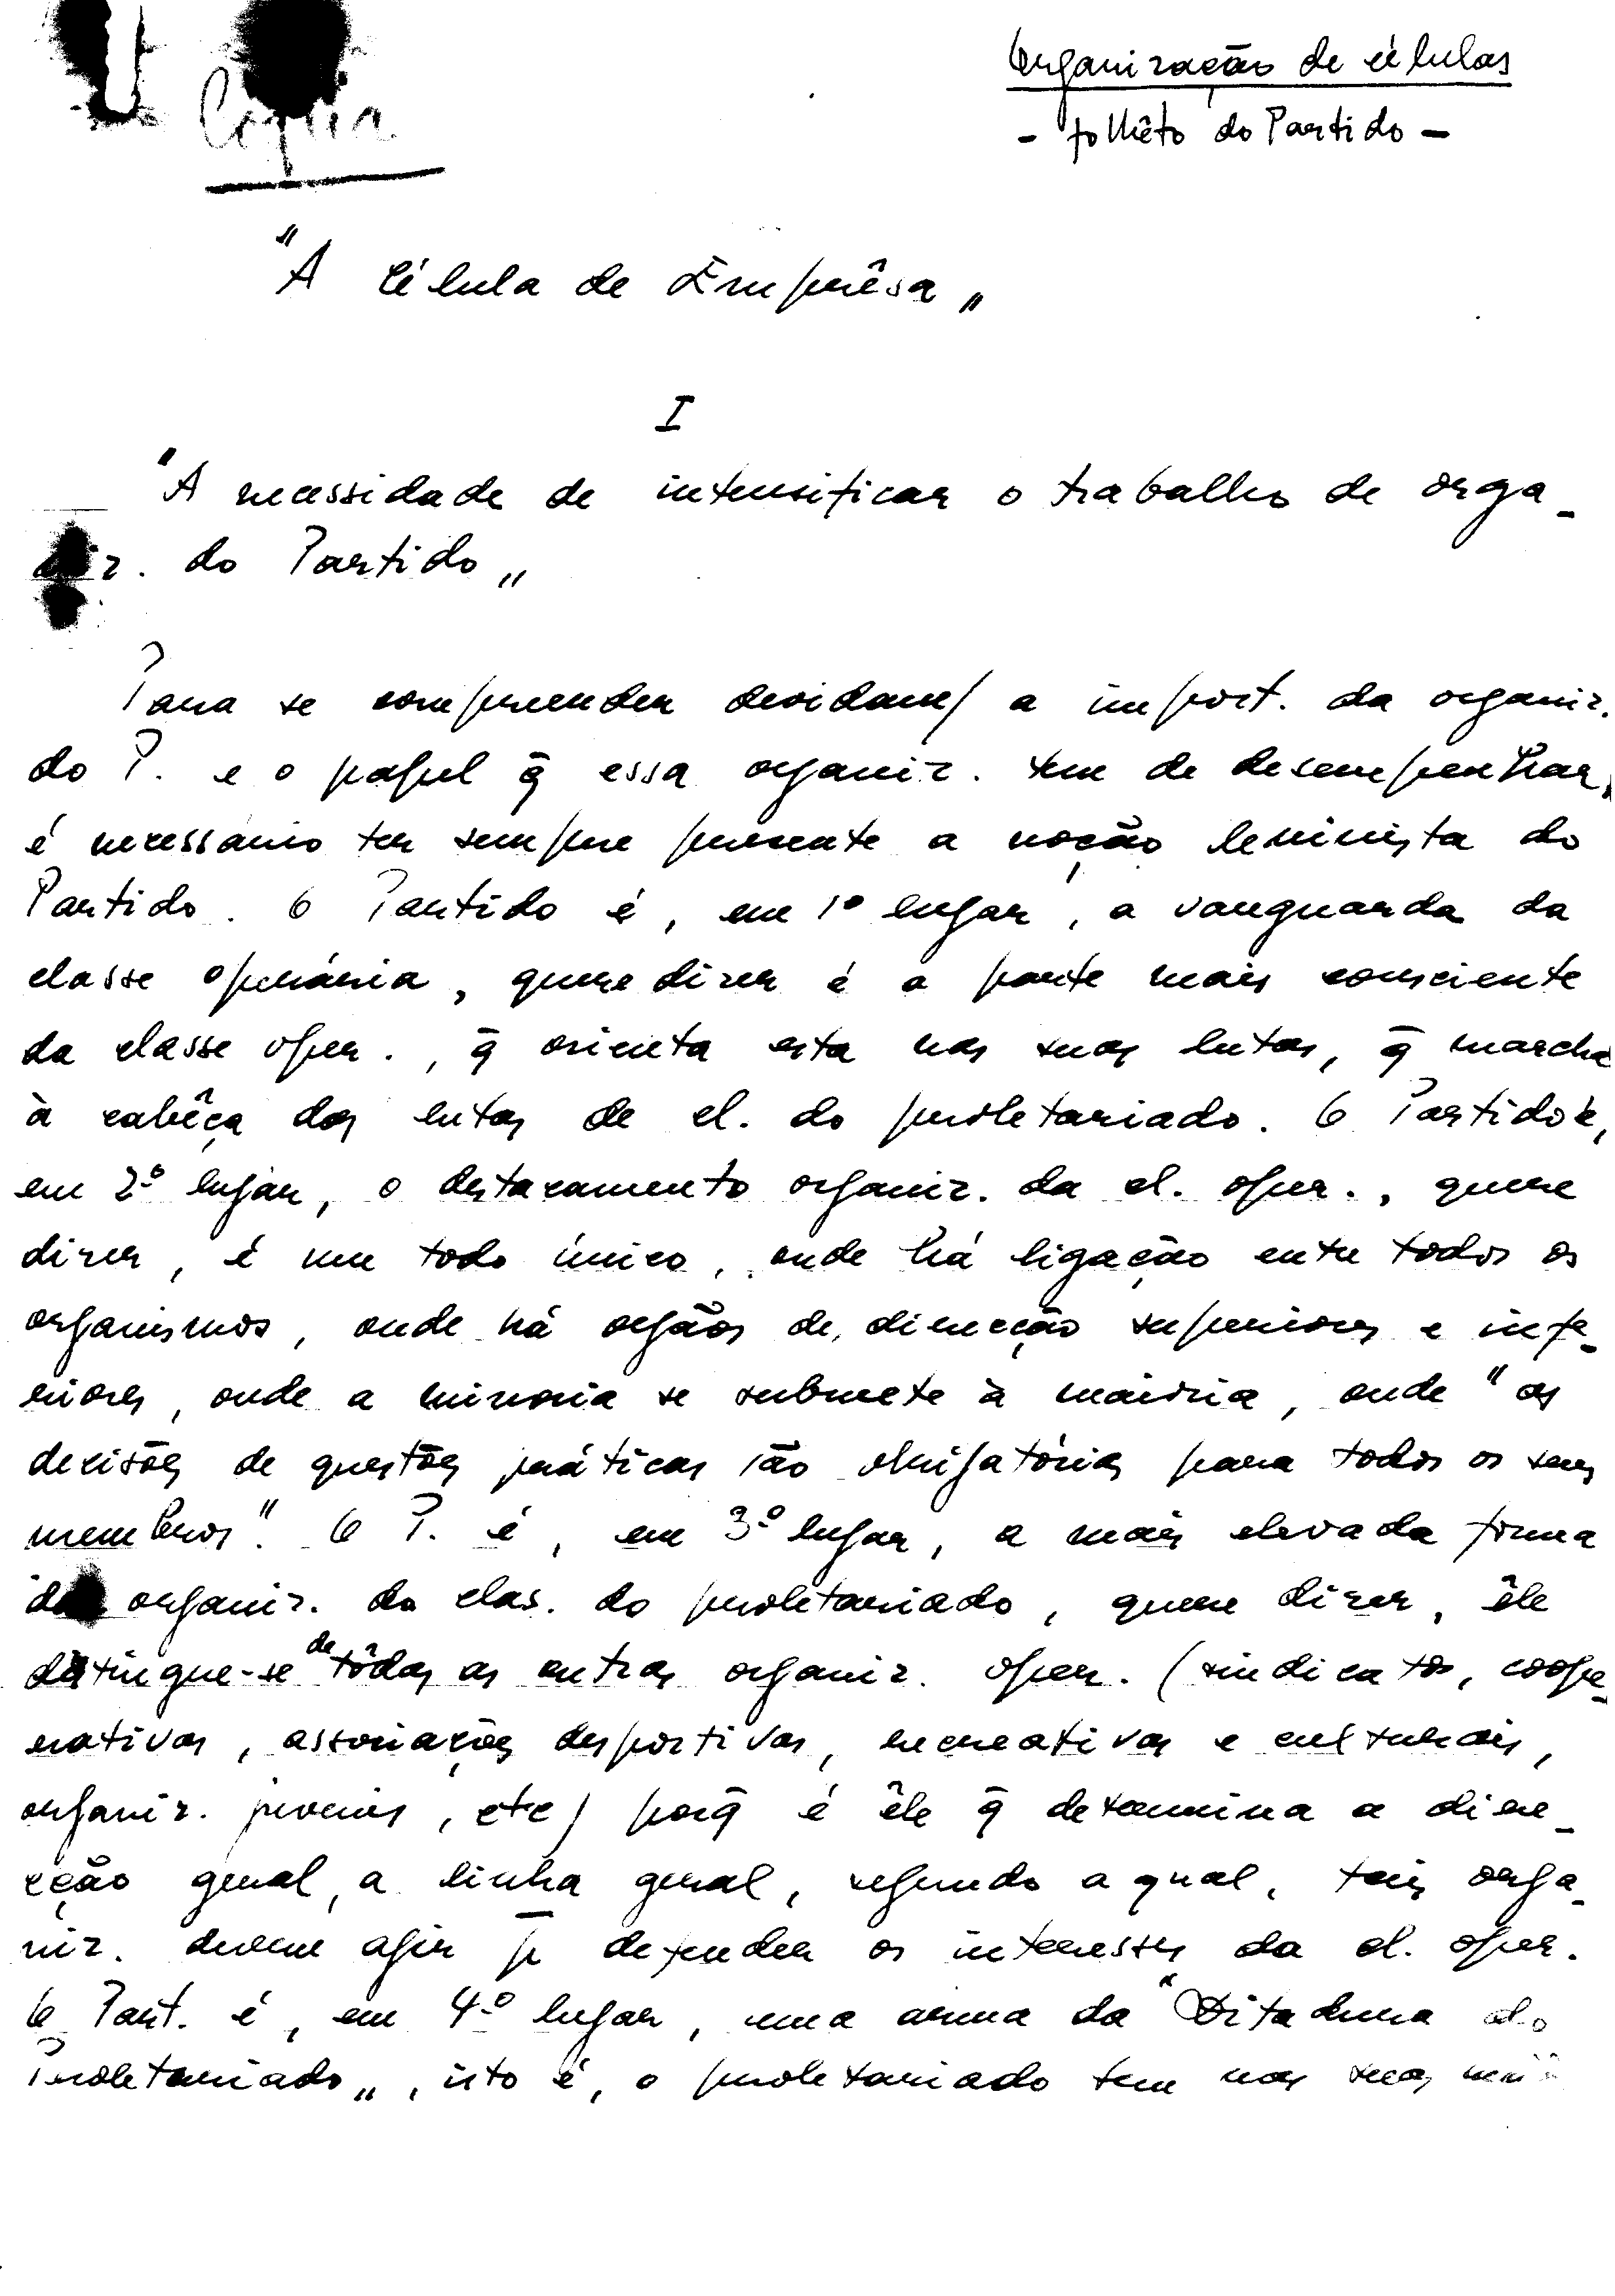 Organização de células
- folhêto do Partido -
Cópia
"A Célula de Emprêsa„
I
"A necessidade de intensificar o trabalho de orga-
niz. do Partido„
Para se compreender devidame/ a import. da organiz.
do P. e o papel q̄ essa organiz. tem de desempenhar,
é necessário ter sempre presente a noção leninista do
Partido. O Partido é, em 1º lugar, a vanguarda da
classe operária, quere dizer é a parte mais consciente
da classe oper., q̄ orienta esta nas suas lutas, q̄ marcha
à cabêça das lutas de cl. do proletariado. O Partido é,
em 2º lugar, o destacamento organiz. da cl. oper., quere
dizer, é um todo único, onde há ligação entre todos os
organismos, onde há orgãos de direcção superiores e infe-
riores, onde a minoria se submete à maioria, onde "as
decisões de questões práticas são obrigatórias para todos os seus
membros". O P. é, em 3º lugar, a mais elevada forma
de organiz. da clas. do proletariado, quere dizer, êle
distingue-se de tôdas as outras organiz. oper. (sindicatos, coope-
rativas, associações desportivas, recreativas e culturais,
organiz. juvenis, etc) porq̄ é êle q̄ determina a dire-
cção geral, a linha geral, segundo a qual, tais orga-
niz. devem agir p̄ defender os interesses da cl. oper.
O Part. é, em 4º lugar, uma arma da "Ditadura do
Proletariado„, isto é, o proletariado tem nas suas